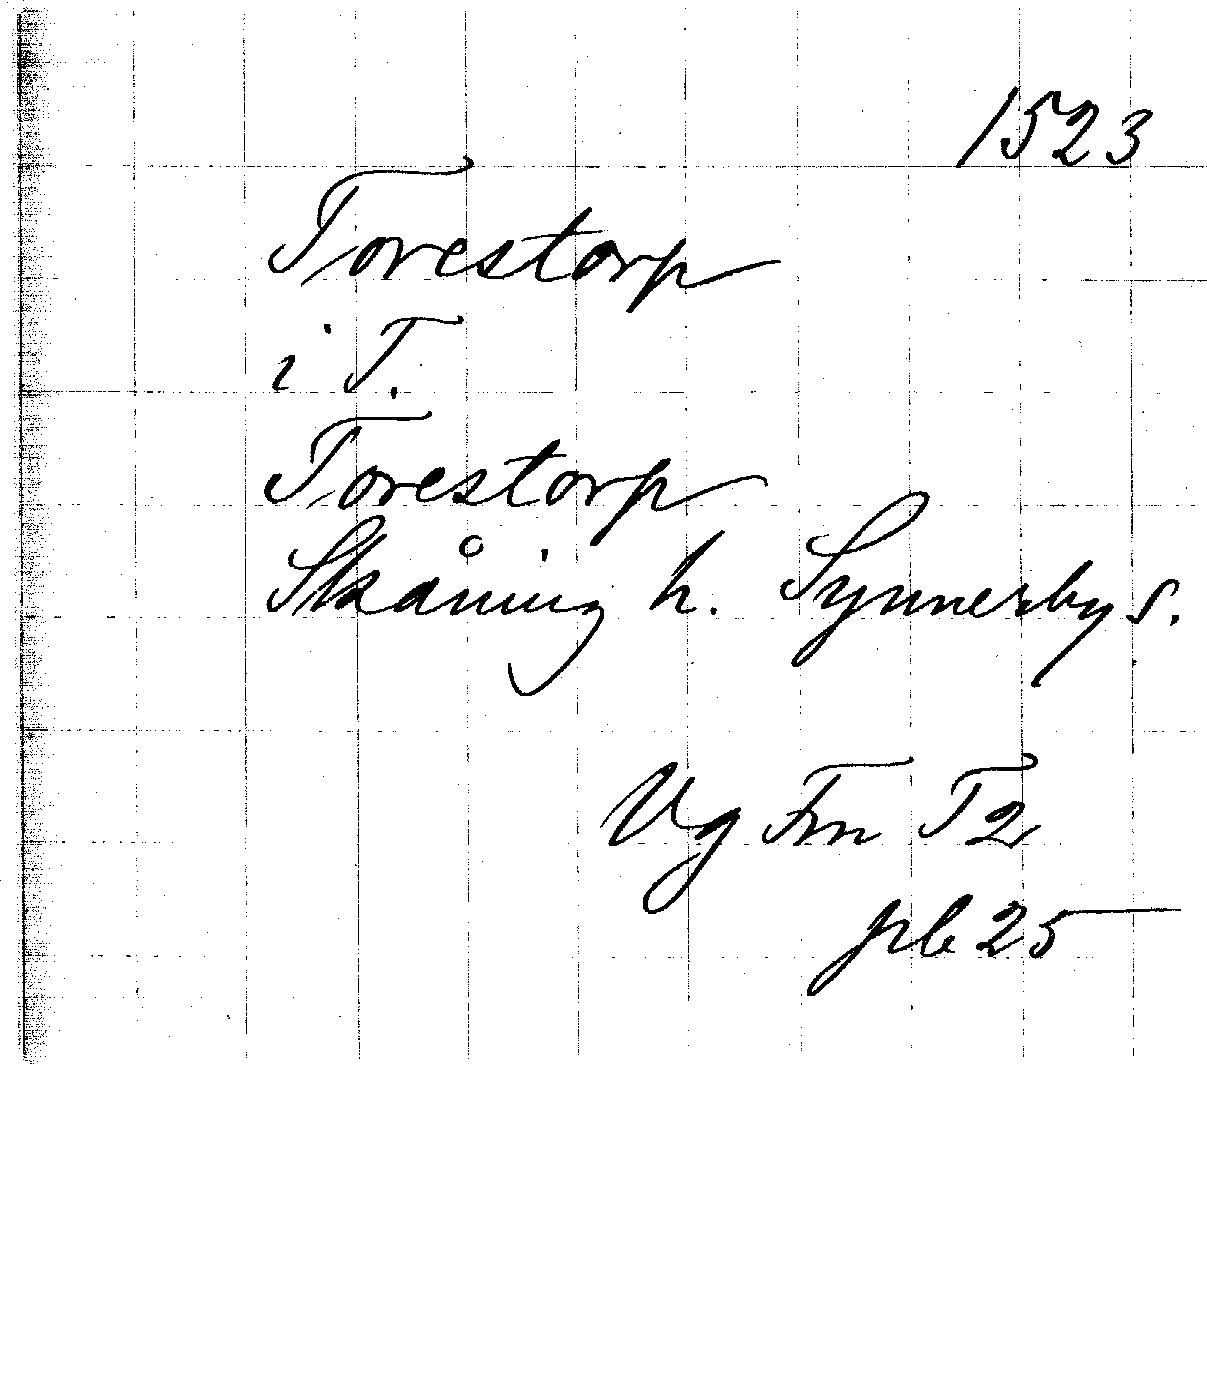 1523
Torestorp
i T.
Torestorp
Skåning h. Synnerby s.
Vg Fm T2
pb 25